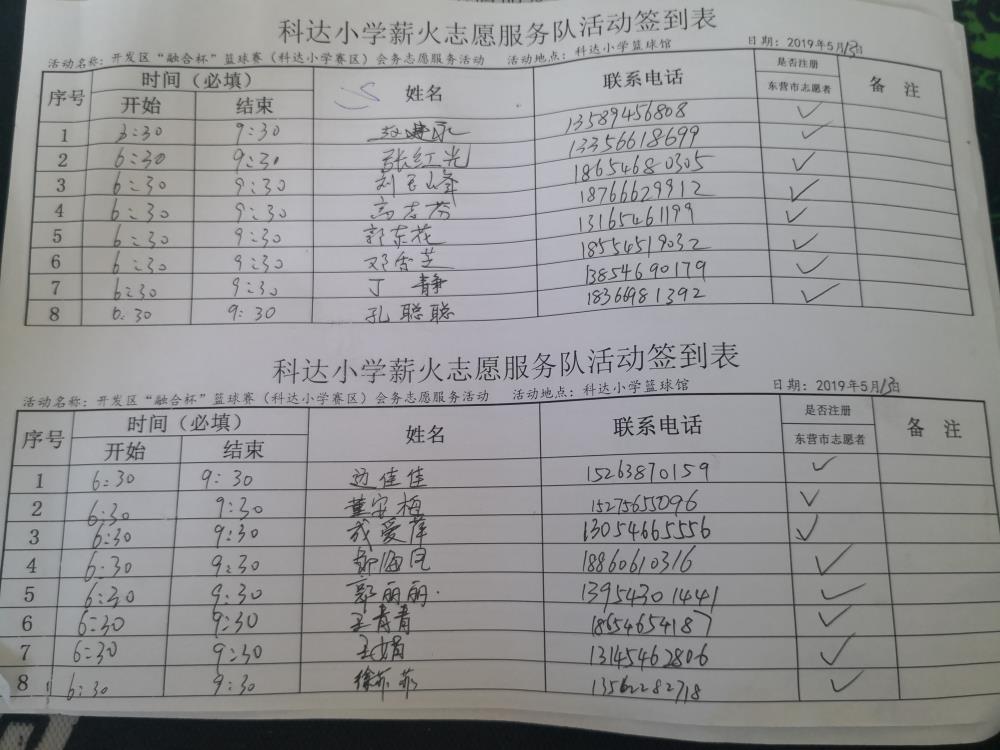 科达小学薪火志愿服务队活动签到表
活动名称：开发区“融合杯”篮球赛（科达小学赛区）会务志愿服务活动 活动地点：科达小学篮球馆 日期：2019年5月13日
序号 时间（必填） 姓名 联系电话 是否注册 备 注
开始 结束 东营市志愿者
1 6:30 9:30 13589456808 ✓
2 6:30 9:30 张红光 13356618699 ✓
3 6:30 9:30 刘玉峰 18654680305 ✓
4 6:30 9:30 高志芬 18766629912 ✓
5 6:30 9:30 郭东花 13165461199 ✓
6 6:30 9:30 邓香芝 18554519032 ✓
7 6:30 9:30 丁静 13854690179 ✓
8 6:30 9:30 孔聪聪 18366981392 ✓
科达小学薪火志愿服务队活动签到表
活动名称：开发区“融合杯”篮球赛（科达小学赛区）会务志愿服务活动 活动地点：科达小学篮球馆 日期：2019年5月13日
序号 时间（必填） 姓名 联系电话 是否注册 备 注
开始 结束 东营市志愿者
1 6:30 9:30 边佳佳 15263870159 ✓
2 6:30 9:30 董安梅 15275655096 ✓
3 6:30 9:30 13054665556 ✓
4 6:30 9:30 18860610316 ✓
5 6:30 9:30 郭丽丽 13954301441 ✓
6 6:30 9:30 王青青 18654654187 ✓
7 6:30 9:30 王娟 13145462806 ✓
8 6:30 9:30 徐苏苏 13562282718 ✓